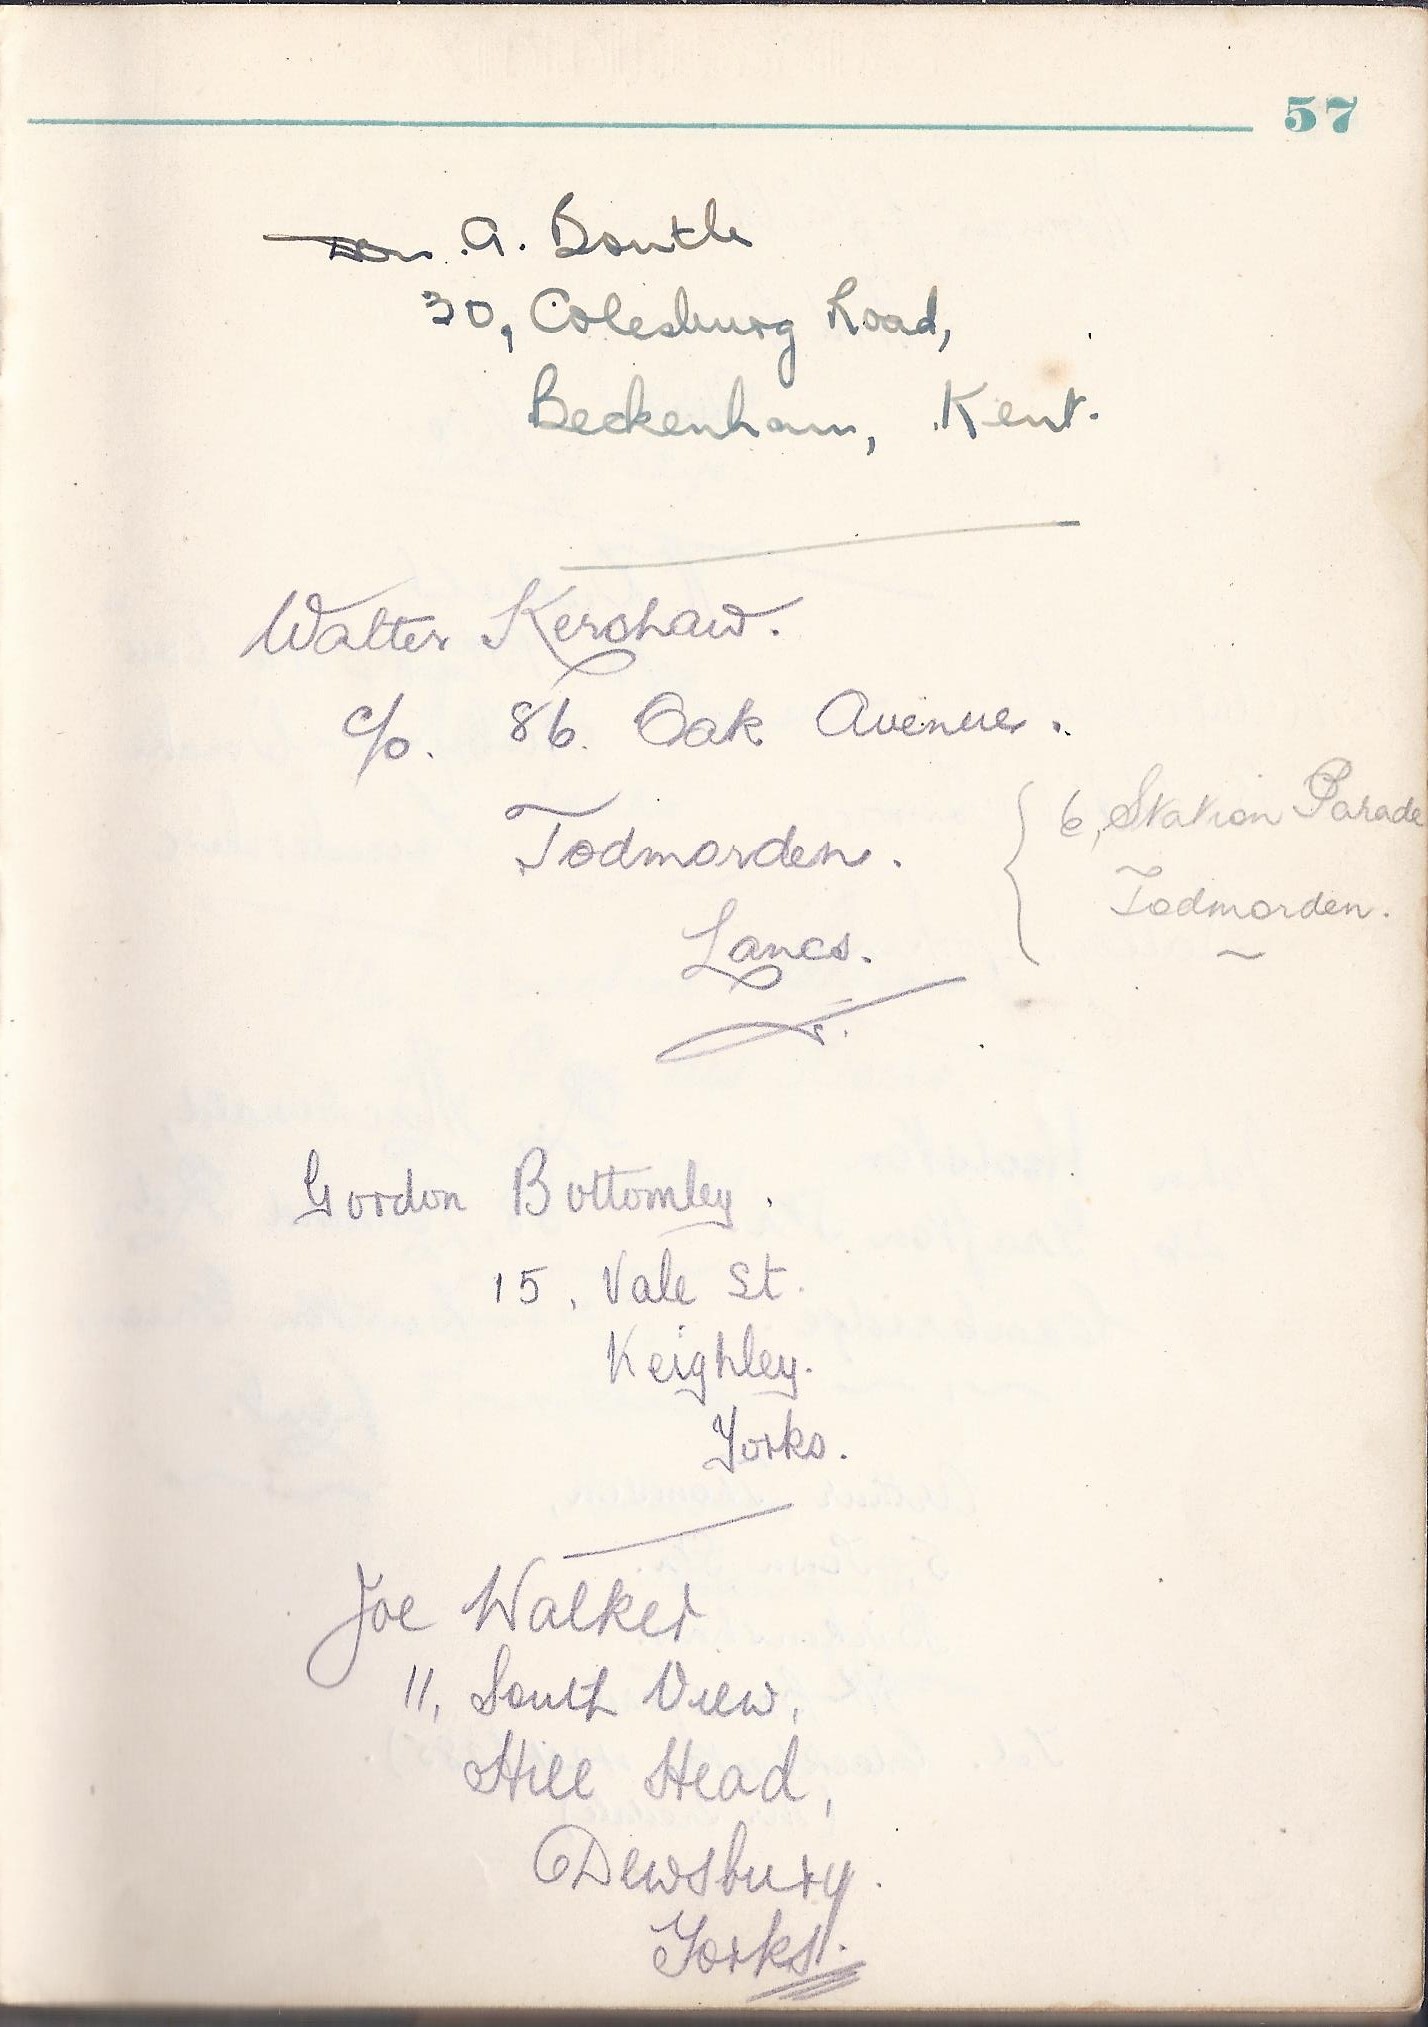 57
A. Boutle
30, Colesburg Road,
Beckenham, Kent.
Walter Kershaw.
c/o. 86. Oak Avenue.
Todmorden.
Lancs.
6, Station Parade
Todmorden.
Gordon Bottomley.
15, Vale St.
Keighley.
Yorks.
Joe Walker
11, South View,
Hill Head,
Dewsbury.
Yorks.